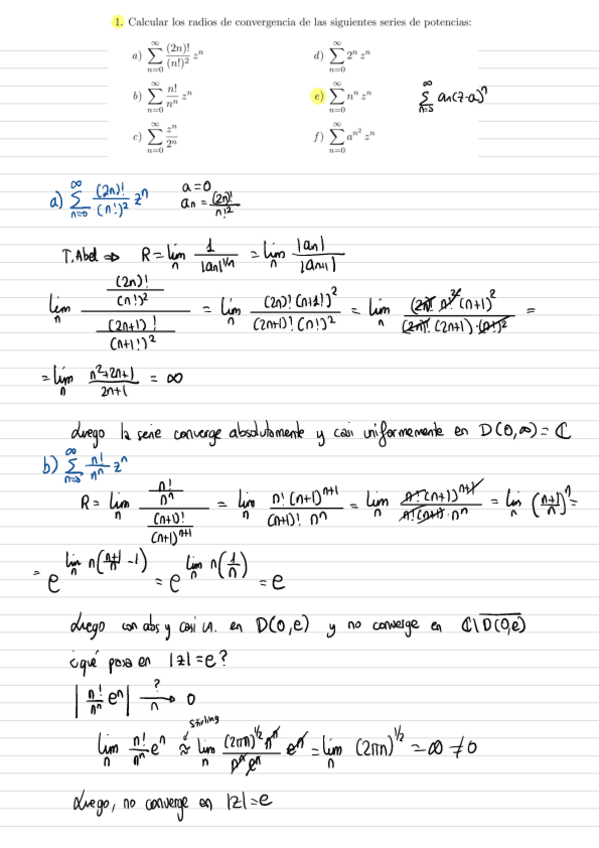 1. Calcular los radios de convergencia de las siguientes series de potencias:
a) \sum_{n=0}^{\infty} \frac{(2n)!}{(n!)^2} z^n
d) \sum_{n=0}^{\infty} 2^n z^n
b) \sum_{n=0}^{\infty} \frac{n!}{n^n} z^n
e) \sum_{n=0}^{\infty} n^n z^n
\sum_{n=0}^{\infty} an(z-a)^n
c) \sum_{n=0}^{\infty} \frac{z^n}{2n}
f) \sum_{n=0}^{\infty} a^{n^2} z^n
a) \sum_{n=0}^{\infty} \frac{(2n)!}{(n!)^2} z^n
a=0
an = \frac{(2n)!}{n!^2}
T.Abel ⇒ R = lim_n \frac{1}{|an|^{1/n}} = lim_n \frac{|an|}{|an+1|}
lim_n \frac{\frac{(2n)!}{(n!)^2}}{\frac{(2n+1)!}{(n+1!)^2}} = lim_n \frac{(2n)! (n+1!)^2}{(2n+1)! (n!)^2} = lim_n \frac{(2n)! n!^2 (n+1)^2}{(2n)! (2n+1) \cdot (n!)^2} =
= lim_n \frac{n^2+2n+1}{2n+1} = ∞
Luego la serie converge absolutamente y casi uniformemente en D(0,∞) = ℂ
b) \sum_{n=0}^{\infty} \frac{n!}{n^n} z^n
R = lim_n \frac{\frac{n!}{n^n}}{\frac{(n+1)!}{(n+1)^{n+1}}} = lim_n \frac{n! (n+1)^{n+1}}{(n+1)! n^n} = lim_n \frac{n! (n+1)^{n+1}}{n! (n+1) \cdot n^n} = lim_n (\frac{n+1}{n})^n =
= e^{lim_n n(\frac{n+1}{n} -1)} = e^{lim_n n(\frac{1}{n})} = e
Luego con abs y casi u. en D(0,e) y no converge en ℂ\\overline{D(0,e)}
¿qué pasa en |z|=e?
|\frac{n!}{n^n} e^n| \xrightarrow[n]{?} 0
Stirling
lim_n \frac{n!}{n^n} e^n ≈ lim_n \frac{(2πn)^{1/2} n^n}{n^n e^n} e^n = lim_n (2πn)^{1/2} = ∞ ≠ 0
Luego, no converge en |z|=e